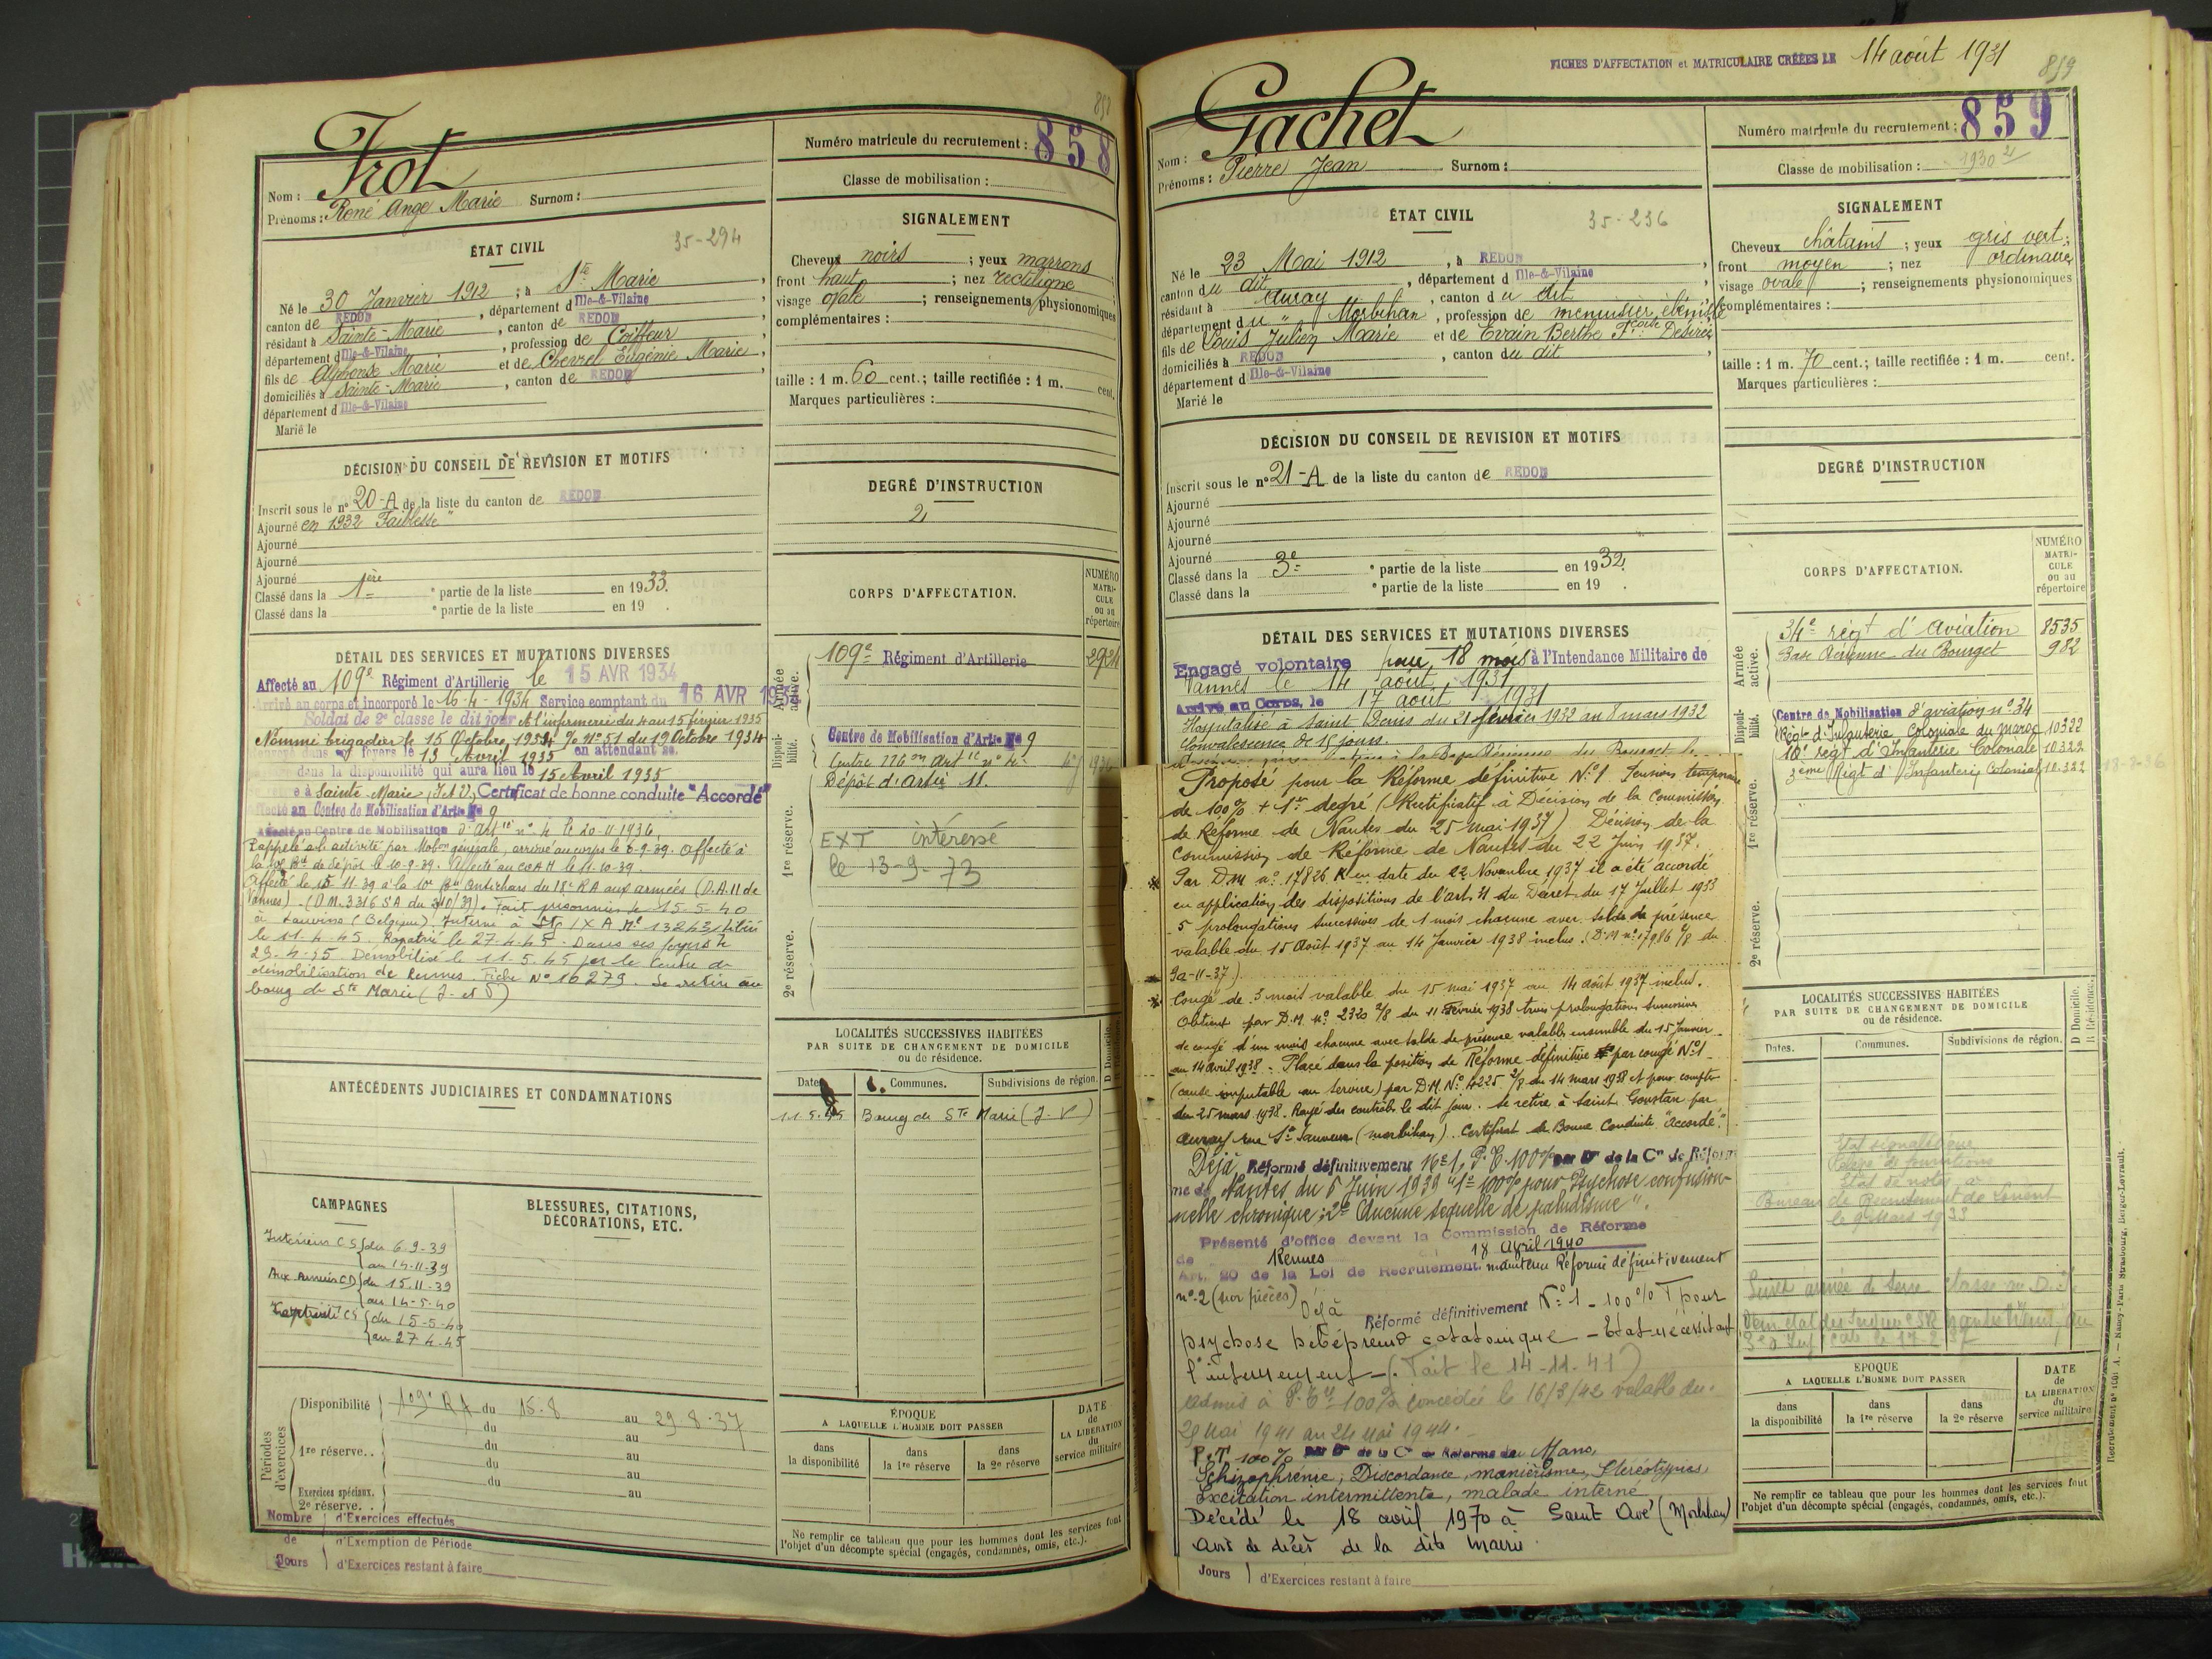 858
Frot
Numéro matricule du recrutement : 858
Nom :
Prénoms : René Ange Marie Surnom :
Classe de mobilisation :
ÉTAT CIVIL
35-294
Né le 30 Janvier 1912 ; à Ste Marie,
canton de REDON, département d Ille-&-Vilaine,
résidant à Sainte-Marie, canton de REDON,
département d Ille-&-Vilaine, profession de Coiffeur,
fils de Alphonse Marie et de Chevrel Eugénie Marie,
domiciliés à Sainte-Marie, canton de REDON,
département d Ille-&-Vilaine
Marié le
SIGNALEMENT
Cheveux noirs ; yeux marrons
front haut ; nez rectiligne
visage ovale ; renseignements physionomiques
complémentaires :
taille : 1 m. 60 cent.; taille rectifiée : 1 m. cent.
Marques particulières :
DÉCISION DU CONSEIL DE REVISION ET MOTIFS
Inscrit sous le n° 20-A de la liste du canton de REDON
Ajourné en 1932 "Faiblesse"
Ajourné
Ajourné
Ajourné
Classé dans la 1ère partie de la liste en 1933.
Classé dans la e partie de la liste en 19 .
DEGRÉ D'INSTRUCTION
2
DÉTAIL DES SERVICES ET MUTATIONS DIVERSES
Affecté au 109e Régiment d'Artillerie le 15 AVR 1934
Arrivé au corps et incorporé le 16-4-1934 Service comptant du 16 AVR 1934
Soldat de 2e classe le dit jour A l'infirmerie du 4 au 15 février 1935
Nommé brigadier le 15 Octobre 1934 N° 51 du 19 Octobre 1934
foyers le 13 Avril 1935 en attendant sa
dans la disponibilité qui aura lieu le 15 Avril 1935
à Sainte-Marie, (I et V), Certificat de bonne conduite "Accordé"
Affecté au Centre de Mobilisation d'Artie N° 9
Affecté au Centre de Mobilisation d'Artie n° 4 le 20-11-1936.
Rappelé à l'activité par Mobon générale, arrivé au corps le 6-9-39. Affecté à
la Bie de dépôt le 10-9-39. Affecté au COAH le 11-10-39.
Affecté le 15 11-39 à la 10e Bie antichars du 18e RA aux armées (D.A. 11 de
Vannes) - (D.M. 3316 SA du 3/10/39). Fait prisonnier le 15-5-40
à Lauvins (Belgique). Interné à Stg IX A N° 13243 Libéré
le 11-4-45. Rapatrié le 27.4.45. Dans ses foyers le
29-4-45 Démobilisé le 11-5.45 par le Centre de
démobilisation de Rennes. Fiche N° 16279. Se retire au
bourg de Ste Marie (I- et V)
CORPS D'AFFECTATION.
NUMÉRO MATRICULE ou au répertoire
Armée active.
109e Régiment d'Artillerie
Disponibilité.
Centre de Mobilisation d'Artie N° 9
Centre 116 en Artie n° 4
Dépôt d'artie 11.
1re réserve.
EXT intéressé
le 13-9-73
2e réserve.
LOCALITÉS SUCCESSIVES HABITÉES
PAR SUITE DE CHANGEMENT DE DOMICILE
ou de résidence.
Dates. Communes. Subdivisions de région.
11-5-45 Bourg de Ste Marie (I-V)
ANTÉCÉDENTS JUDICIAIRES ET CONDAMNATIONS
CAMPAGNES
Intérieur CS du 6-9-39
au 14-11-39
Aux Armées CD du 15.11-39
au 14-5-40
Captivité CS du 15-5-40
au 27 4-45
BLESSURES, CITATIONS,
DÉCORATIONS, ETC.
Périodes d'exercices
Disponibilité 109e RA du 15.8 au 29.8.37
du au
1re réserve.. du au
du au
Exercices spéciaux. du au
2e réserve. .
Nombre de Jours
d'Exercices effectués
d'Exemption de Période
d'Exercices restant à faire
ÉPOQUE
A LAQUELLE L'HOMME DOIT PASSER
dans la disponibilité
dans la 1re réserve
dans la 2e réserve
DATE de LA LIBÉRATION du service militaire
Ne remplir ce tableau que pour les hommes dont les services font
l'objet d'un décompte spécial (engagés, condamnés, omis, etc.).
FICHES D'AFFECTATION et MATRICULAIRE CRÉÉES LE 14 août 1931
859
Gachet
Numéro matricule du recrutement : 859
Nom :
Prénoms : Pierre Jean Surnom :
Classe de mobilisation : 1930
ÉTAT CIVIL
35-236
Né le 23 Mai 1912, à REDON,
canton du dit, département d Ille-&-Vilaine,
résidant à Auray, canton du dit
département du " Morbihan, profession de menuisier ébéniste
fils de Louis Julien Marie et de Evain Berthe Fcoise Désirée
domiciliés à REDON, canton du dit,
département d Ille-&-Vilaine
Marié le
SIGNALEMENT
Cheveux châtains ; yeux gris vert ;
front moyen ; nez ordinaire
visage ovale ; renseignements physionomiques
complémentaires :
taille : 1 m. 70 cent.; taille rectifiée : 1 m. cent.
Marques particulières :
DÉCISION DU CONSEIL DE REVISION ET MOTIFS
Inscrit sous le n° 21-A de la liste du canton de REDON
Ajourné
Ajourné
Ajourné
Ajourné
Classé dans la 3e partie de la liste en 1932.
Classé dans la e partie de la liste en 19 .
DEGRÉ D'INSTRUCTION
DÉTAIL DES SERVICES ET MUTATIONS DIVERSES
Engagé volontaire pour 18 mois à l'Intendance Militaire de
Vannes le 14 août 1931
Arrivé au Corps, le 17 août 1931
Hospitalisé à Saint Denis du 21 février 1932 au 8 mars 1932
Convalescence de 15 jours
Proposé pour la Réforme définitive N° 1 Pension temporaire
de 100% + 1er degré (Rectificatif à Décision de la Commission
de Réforme de Nantes du 25 mai 1937) Décision de la
Commission de Réforme de Nantes du 22 Juin 1937.
Par D.M n° 17826 K en date du 22 Novembre 1937 il a été accordé
en application des dispositions de l'art. 21 du Décret du 17 Juillet 1933
5 prolongations successives de 1 mois chacune avec solde de présence
valable du 15 Août 1937 au 14 Janvier 1938 inclus. (D.M n° 17986 2/8 du
92-11-37)
Congé de 3 mois valable du 15 mai 1937 au 14 août 1937 inclus.
Obtient par D.M. n° 2320 2/8 du 11 Février 1938 trois prolongations successives
de congé d'un mois chacune avec solde de présence valable ensemble du 15 Janvier
au 14 avril 1938 - Placé dans la position de Réforme définitive par congé N° 1
(cause imputable au service) par D.M. N° 4225 2/8 du 14 mars 1938 et pour compter
du 25 mars 1938. Rayé des contrôles le dit jour. Se retire à Saint Goustan par
Auray rue St Sauveur (Morbihan). Certificat de Bonne Conduite "Accordé".
Déjà Réformé définitivement N° 1, P.T. 100% par Don de la Con de Réfor
me de Nantes du 6 Juin 1939 "1° 100% pour Psychose confusion-
nelle chronique ; 2° Aucune séquelle de paludisme".
Présenté d'office devant la Commission de Réforme
de Rennes 18 Avril 1940
Art. 20 de la Loi de Recrutement. maintenu Réformé définitivement
n° 2 (sur pièces)
Déjà Réformé définitivement N° 1 - 100% T pour
psychose hébéphreno catatonique - Etat nécessitant
l'internement - (Fait le 14-11-41)
admis à P. Tre 100% concédée le 16/3/42 valable du
25 Mai 1941 au 24 Mai 1944.
P.T. 100% par Don de la Con de Réforme du Mans,
Schizophrénie, Discordance, maniérisme, Stéréotypies,
Excitation intermittente, malade interné
Décédé le 18 avril 1970 à Saint Avé (Morbihan)
Avis de décès de la dite Mairie.
Jours d'Exercices restant à faire
CORPS D'AFFECTATION.
NUMÉRO MATRICULE ou au répertoire
Armée active.
34e régt d'aviation 8535
Base Aérienne du Bourget 982
Disponibilité.
Centre de Mobilisation d'aviation n° 34
Régt d'Infanterie Coloniale du Maroc 10322
10e régt d'Infanterie Coloniale 10322
3ème Régt d'Infanterie Coloniale 10.322
1re réserve.
2e réserve.
LOCALITÉS SUCCESSIVES HABITÉES
PAR SUITE DE CHANGEMENT DE DOMICILE
ou de résidence.
D Domicile. R Résidence.
Dates. Communes. Subdivisions de région.
Etat signalétique
Relevé de punitions
Etat de notes a
Bureau de Recrutement de Lorient
le 9 Mars 1933
ÉPOQUE
A LAQUELLE L'HOMME DOIT PASSER
dans la disponibilité
dans la 1re réserve
dans la 2e réserve
DATE de LA LIBÉRATION du service militaire
Ne remplir ce tableau que pour les hommes dont les services font
l'objet d'un décompte spécial (engagés, condamnés, omis, etc.).
Nancy-Paris Strasbourg, Berger-Levrault.